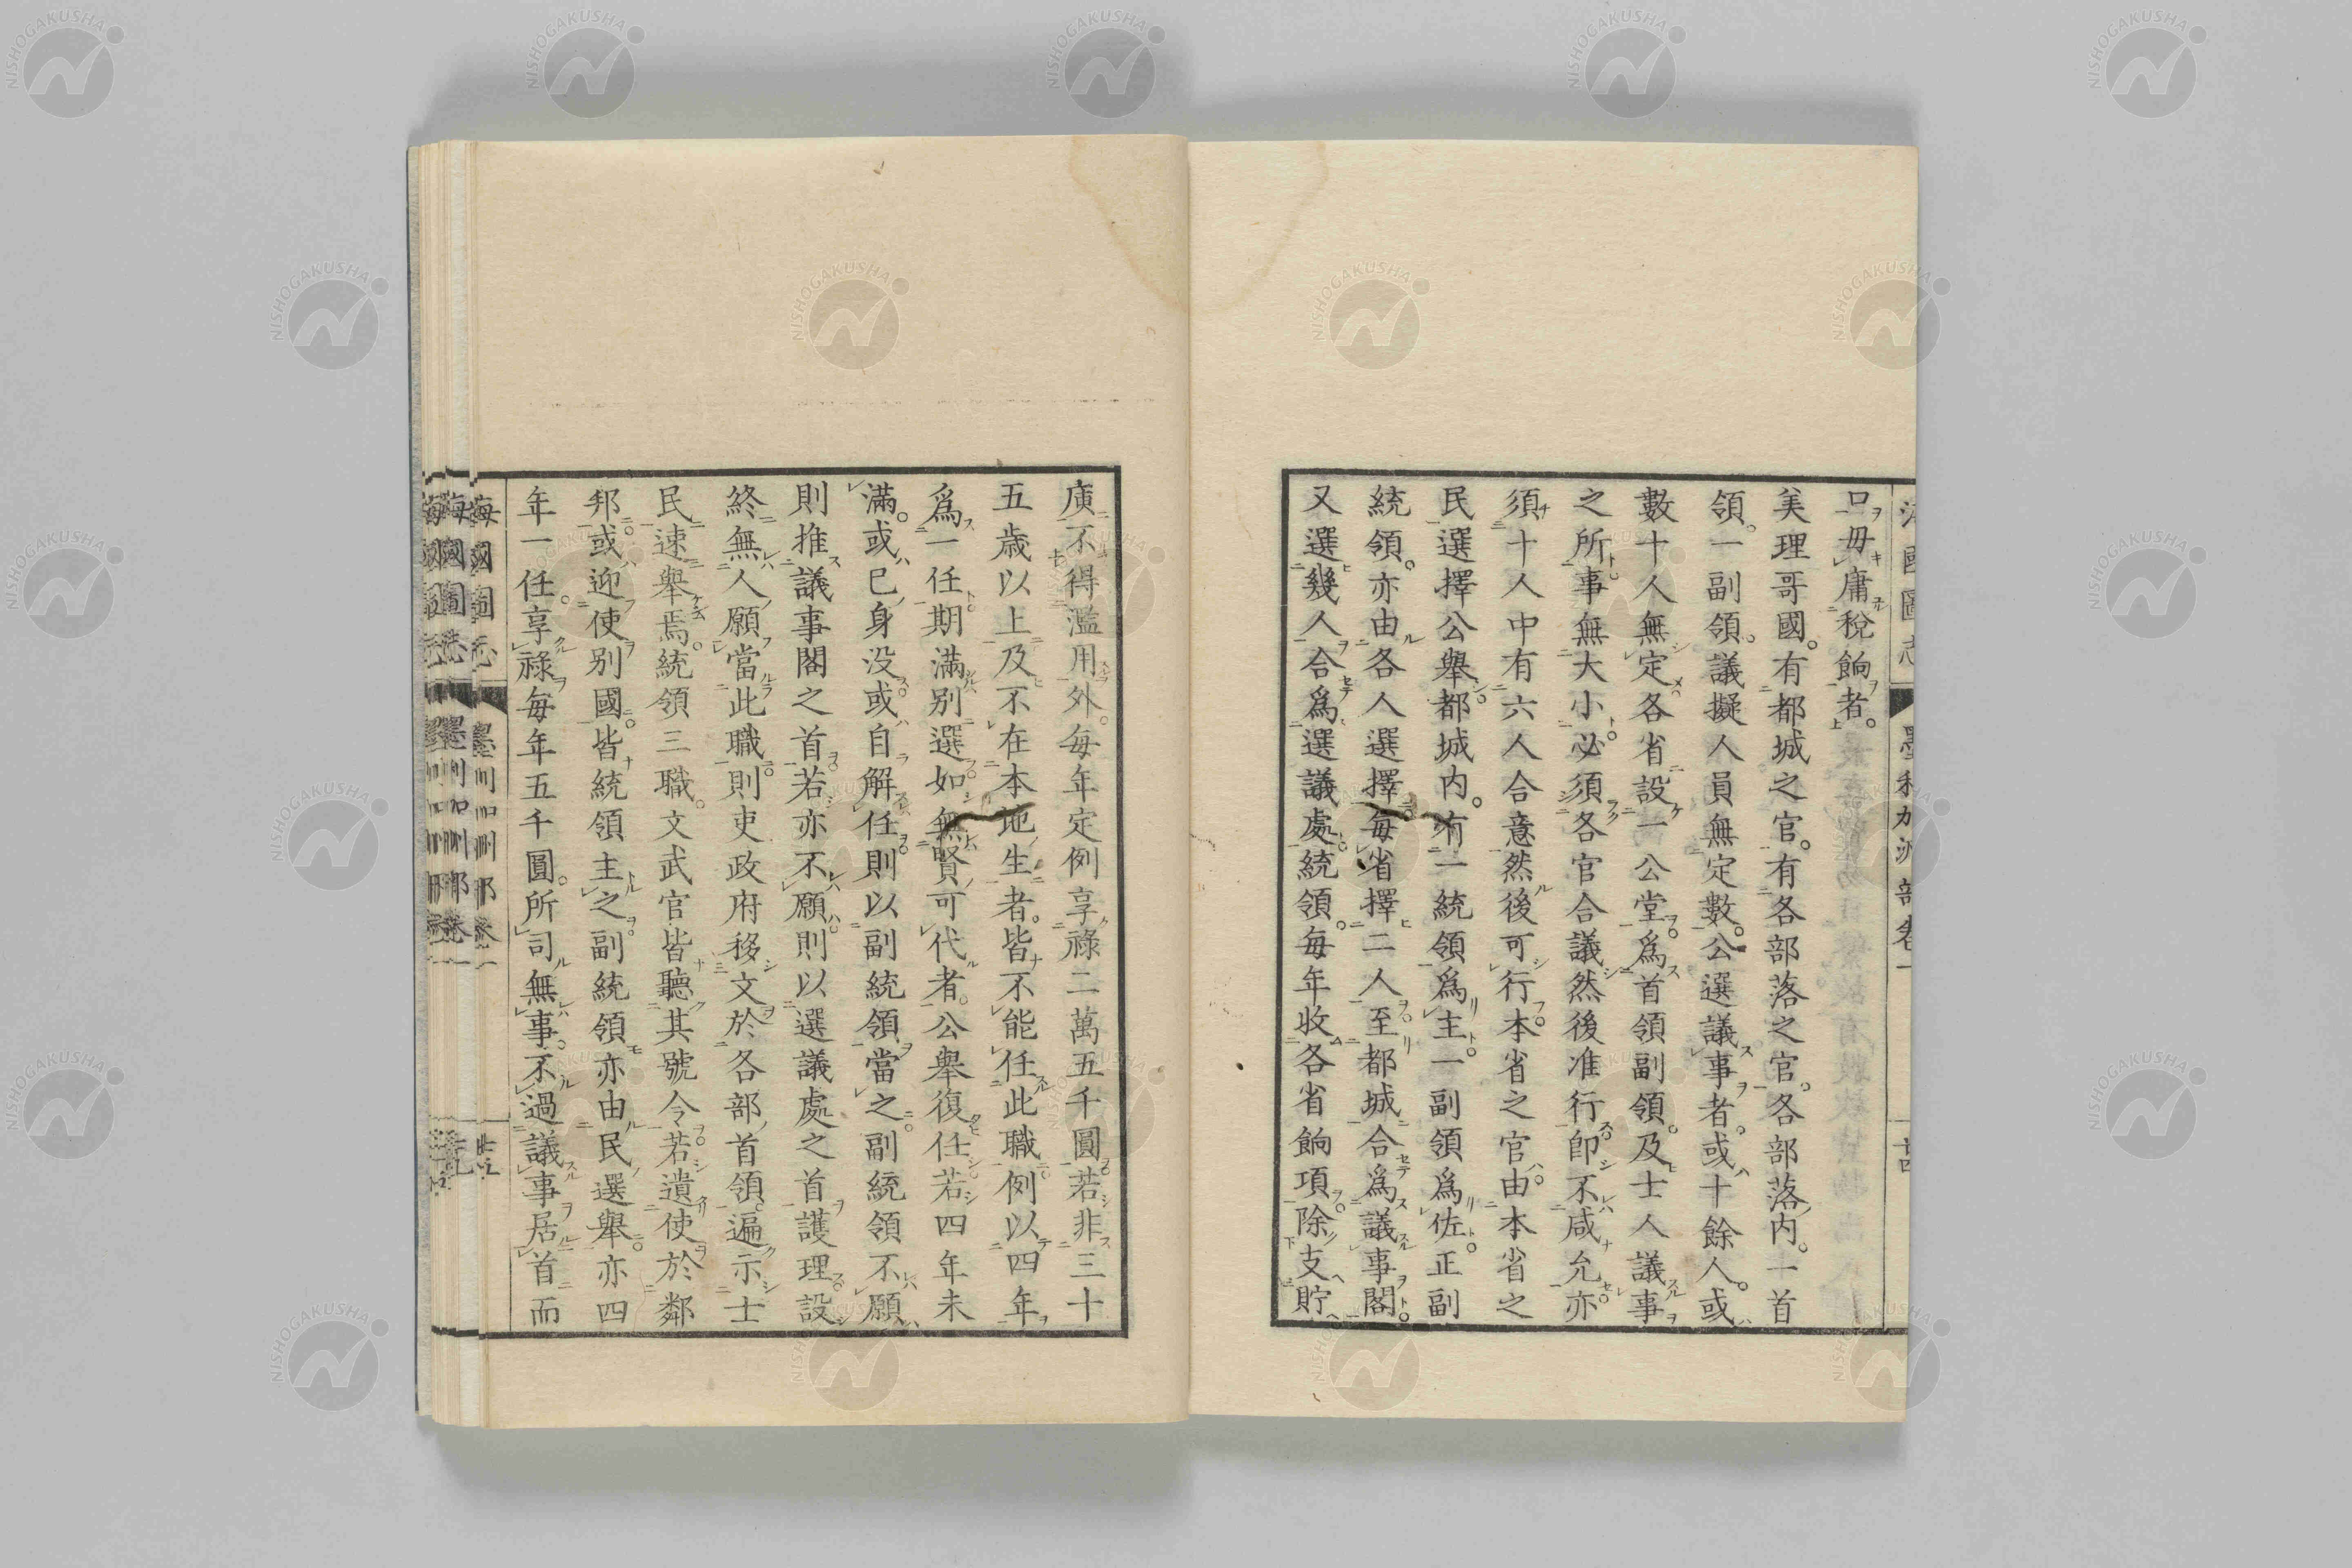 口毋庸稅餉者。
美理哥國。有都城之官。有各部落之官。各部落內。一首
領。一副領。議擬人員無定數。公選議事者。或十餘人。或
數十人無定各省設一公堂。爲首領副領。及士人議事
之所。事無大小。必須各官合議然後准行卽不咸允亦
須十人中有六人合意然後可行。本省之官。由本省之
民選擇公舉。都城內。有一統領爲主。一副領爲佐。正副
統領。亦由各人選擇。每省擇二人。至都城合爲議事閣。
又選幾人合爲選議處。統領。每年收各省餉項。除支貯
庾不得濫用外。每年定例享祿二萬五千圓。若非三十
五歲以上及不在本地生者。皆不能任此職。例以四年
爲一任。期滿別選。如無賢可代者。公舉復任。若四年未
滿。或己身没。或自解任。則以副統領當之。副統領不願
則推議事閣之首。若亦不願。則以選議處之首護理。設
終無人願當此職。則吏政府移文於各部首領。遍示士
民速舉焉。統領三職。文武官皆聽其號令。若遺使於鄰
邦。或迎使別國。皆統領主之。副統領亦由民選舉。亦四
年一任。享祿每年五千圓。所司無事。不過議事居首而